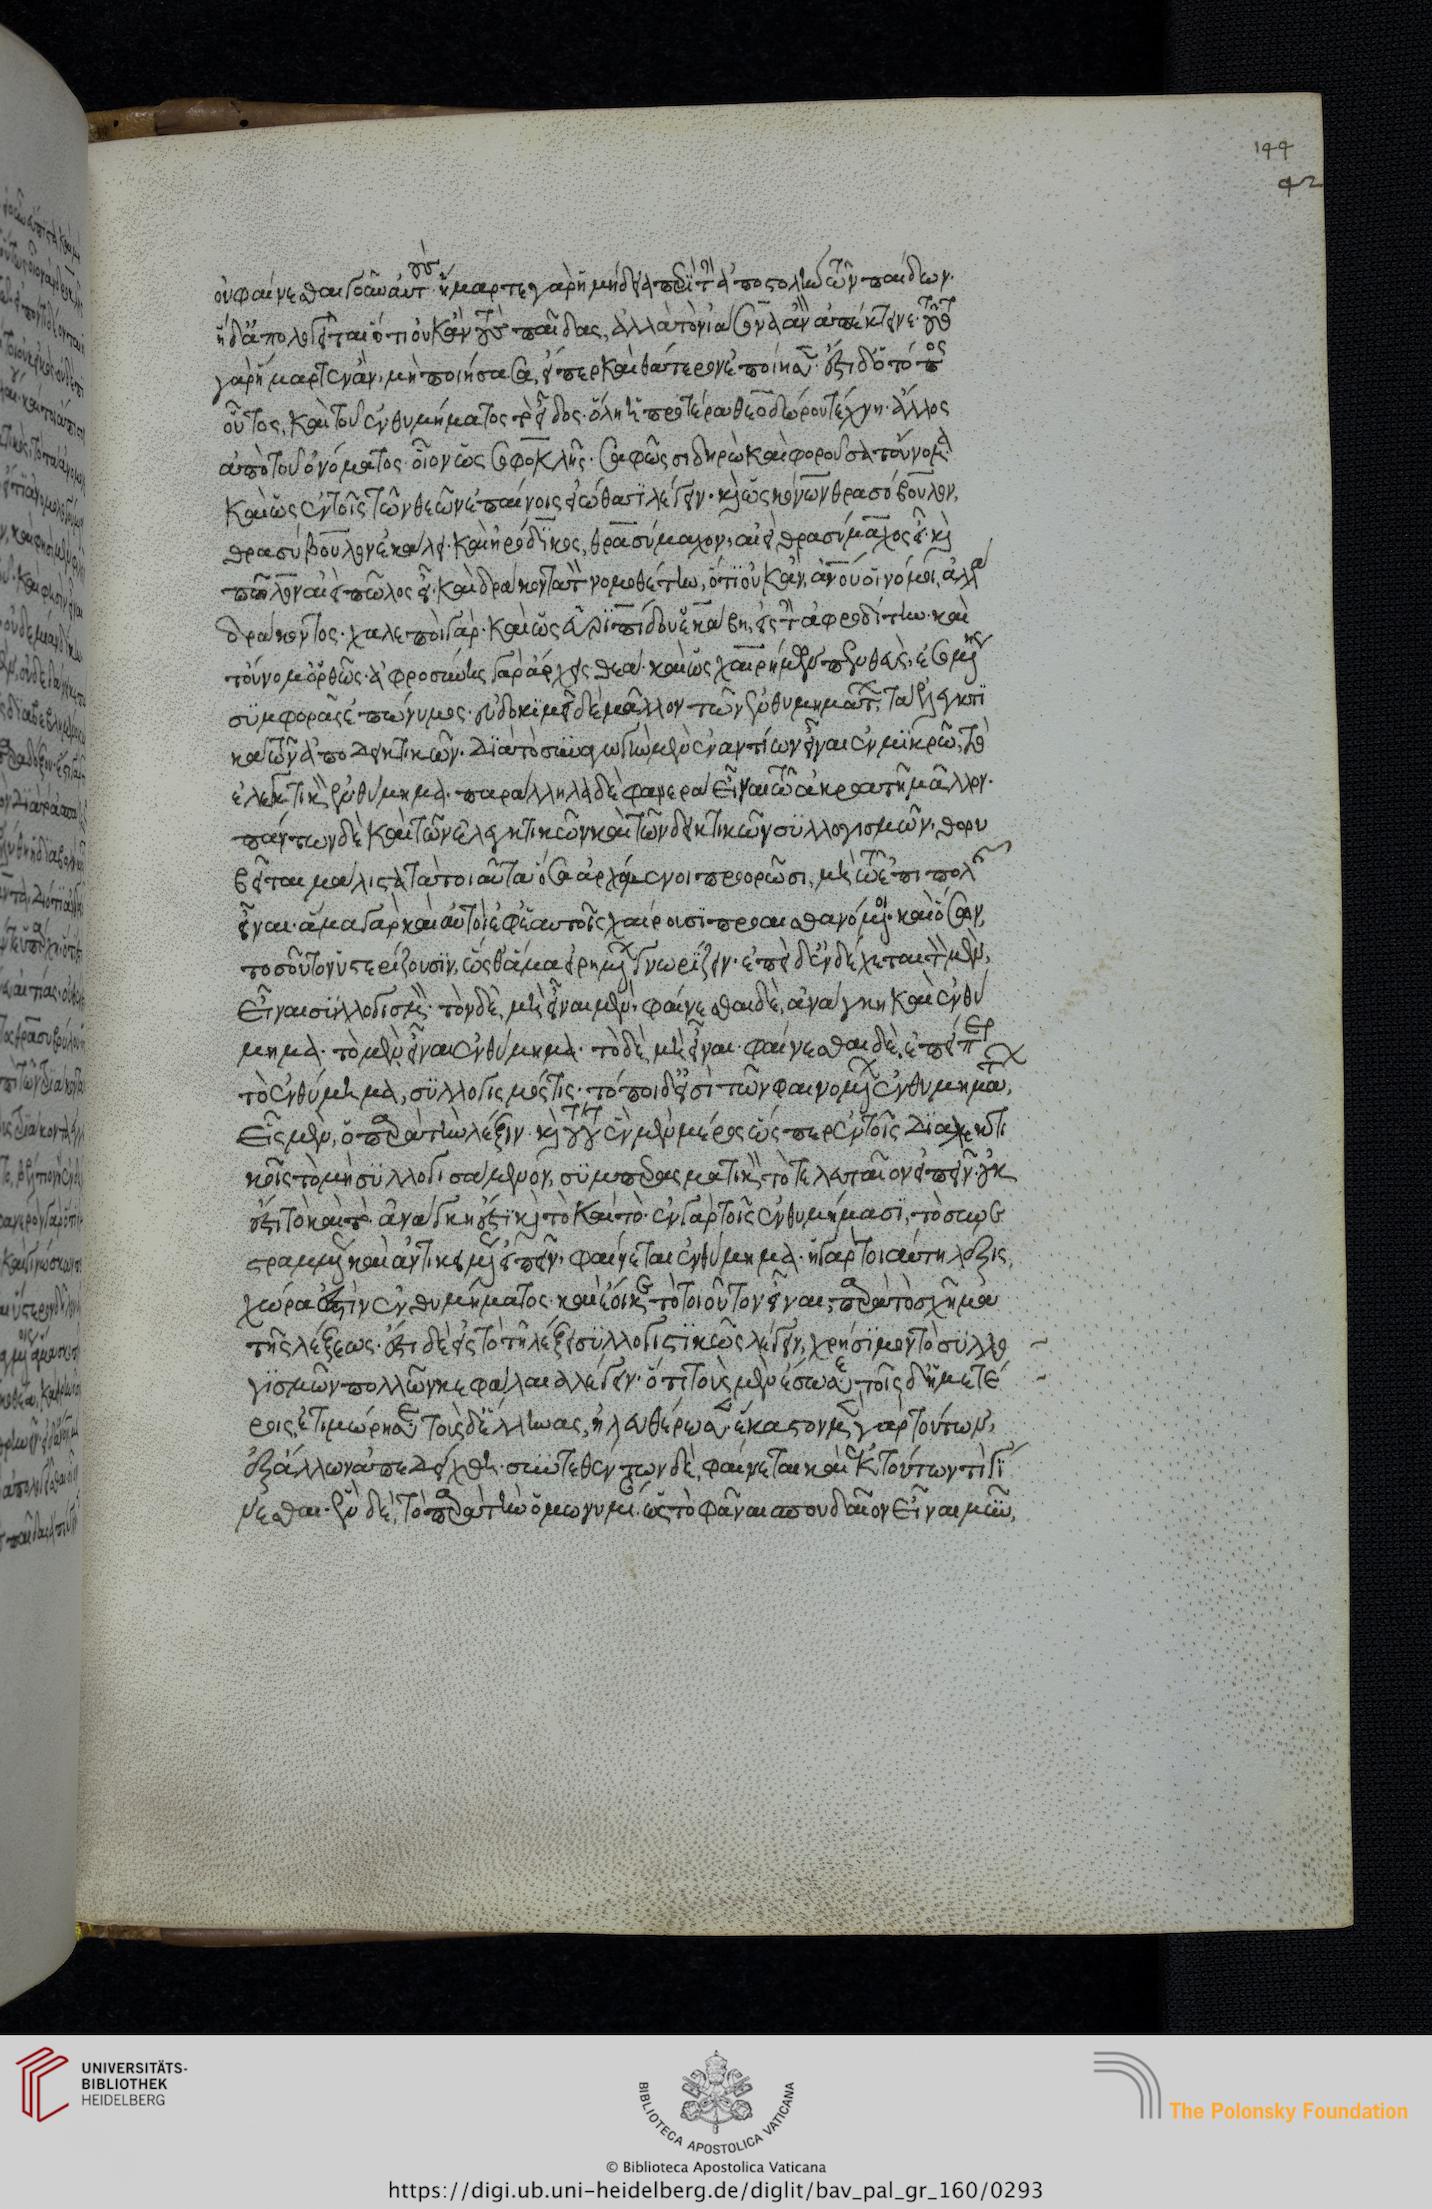 οὐ φαίνεσθαι γοῦν αὐτούς. ἥμαρτε γὰρ ἡ μήδεια περὶ τὴν ἀποστολὴν τῶν παίδων.
ἡ δ' ἀπολογεῖται ὅτι οὐκ ἂν τοὺς παῖδας, ἀλλὰ τὸν ἰάσονα ἂν ἀπέκτεινε. τοῦτο
γὰρ ἥμαρτεν ἂν, μὴ ποιήσασα, εἴπερ καὶ θάτερον ἐποίησεν. ἔστι δ' ὁ τόπος
οὗτος, καὶ τοῦ ἐνθυμήματος τὸ εἶδος. ὅλη ἡ προτέρα θεοδώρου τέχνη. ἄλλος
ἀπὸ τοῦ ὀνόματος. οἷον ὡς σοφοκλῆς. σαφῶς σιδηρὼ καὶ φοροῦσα τοὔνομα.
καὶ ὡς ἐν τοῖς τῶν θεῶν ἐπαίνοις εἰώθασι λέγειν. καὶ ὡς κόνων θρασύβουλον,
θρασύβουλον ἐκάλει. καὶ ἡρόδικος, θρασύμαχον, αἰεὶ θρασύμαχος εἶ. καὶ
πῶλον αἰεὶ πῶλος εἶ. καὶ δράκοντα τὸν νομοθέτην, ὅτι οὐκ ἂν ἀνου οἱ νόμοι, ἀλλὰ
δράκοντος. χαλεποὶ γάρ. καὶ ὡς εὐριπίδου ἑκάβη, εἰς τὴν ἀφροδίτην. καὶ
τοὔνομ' ὀρθῶς. ἀφροσύνης γὰρ ἄρχει θεά. καὶ ὡς χαιρήμων πενθεὺς, ἐσομένης
συμφορᾶς ἐπώνυμος. εὐδοκιμεῖ δὲ μᾶλλον τῶν ἐνθυμημάτων, τὰ ἐλεγκτι
κὰ τῶν ἀποδεικτικῶν. διὰ τὸ συναγωγὴν μὲν ἐναντίων εἶναι ἐν μικρῶ, τὸ
ἐλεγκτικὸν ἐνθύμημα. παράλληλα δὲ φανερὰ εἶναι τῶ ἀκροατῆ μᾶλλον.
πάντων δὲ καὶ τῶν ἐλεγκτικῶν καὶ τῶν δεικτικῶν συλλογισμῶν, θορυ
βεῖται μάλιστα τὰ τοιαῦτα ὅσα ἀρχόμενοι προορῶσι, μὴ τῶ ἐπιπολῆς
εἶναι. ἅμα γὰρ καὶ αὐτοὶ ἐφ' ἑαυτοῖς χαίρουσι προαισθανόμενοι. καὶ ὅσων,
τοσοῦτον ὑστερίζουσιν, ὥσθ' ἅμα εἰρημένων γνωρίζειν. ἐπεὶ δ' ἐνδέχεται τὸν μὲν,
εἶναι συλλογισμόν. τὸν δὲ, μὴ εἶναι μὲν, φαίνεσθαι δὲ, ἀνάγκη καὶ ἐνθύ
μημα. τὸ μὲν εἶναι ἐνθύμημα. τὸ δὲ μὴ εἶναι. φαίνεσθαι δὲ. ἐπείπερ
τὸ ἐνθύμημα, συλλογισμός τις. τόποι δ' εἰσὶ τῶν φαινομένων ἐνθυμημάτων,
εἷς μὲν, ὁ παρὰ τὴν λέξιν. καὶ τούτου ἓν μὲν μέρος ὥσπερ ἐν τοῖς διαλεκτι
κοῖς τὸ μὴ συλλογισάμενον, συμπερασματικῶς τὸ τελευταῖον εἰπεῖν. οὐκ
ἔστι τὸ καὶ τό. ἀνάγκη ἔστι καὶ τὸ καὶ τό. ἐν γὰρ τοῖς ἐνθυμήμασι, τὸ συνε
στραμμένως καὶ ἀντικειμένως εἰπεῖν, φαίνεται ἐνθύμημα. ἡ γὰρ τοιαύτη λέξις,
χώρα ἐστὶν ἐνθυμήματος. καὶ ἔοικε τὸ τοιοῦτον εἶναι, παρὰ τὸ σχῆμα
τῆς λέξεως. ἔστι δὲ εἰς τὸ τῆ λέξει συλλογιστικῶς λέγειν, χρήσιμον τὸ συλλο
γισμῶν πολλῶν κεφάλαια λέγειν. ὅτι τοὺς μὲν ἔσωσε, τοῖς δ' ἡμετέ
ροις, ἐτιμώρησε. τοὺς δ' ἕλληνας, ἠλευθέρωσεν. ἕκαστον μὲν γὰρ τούτων,
ἐξ ἄλλων ἀπεδείχθη. συντεθέντων δὲ, φαίνεται καὶ ἐκ τούτων τὶ γί
νεσθαι. ἓν δὲ, τὸ παρὰ τὴν ὁμωνυμίαν. ὡς τὸ φάναι σπουδαῖον εἶναι μῦν,
144
UNIVERSITÄTS-
BIBLIOTHEK
HEIDELBERG
BIBLIOTECA APOSTOLICA VATICANA
The Polonsky Foundation
© Biblioteca Apostolica Vaticana
https://digi.ub.uni-heidelberg.de/diglit/bav_pal_gr_160/0293